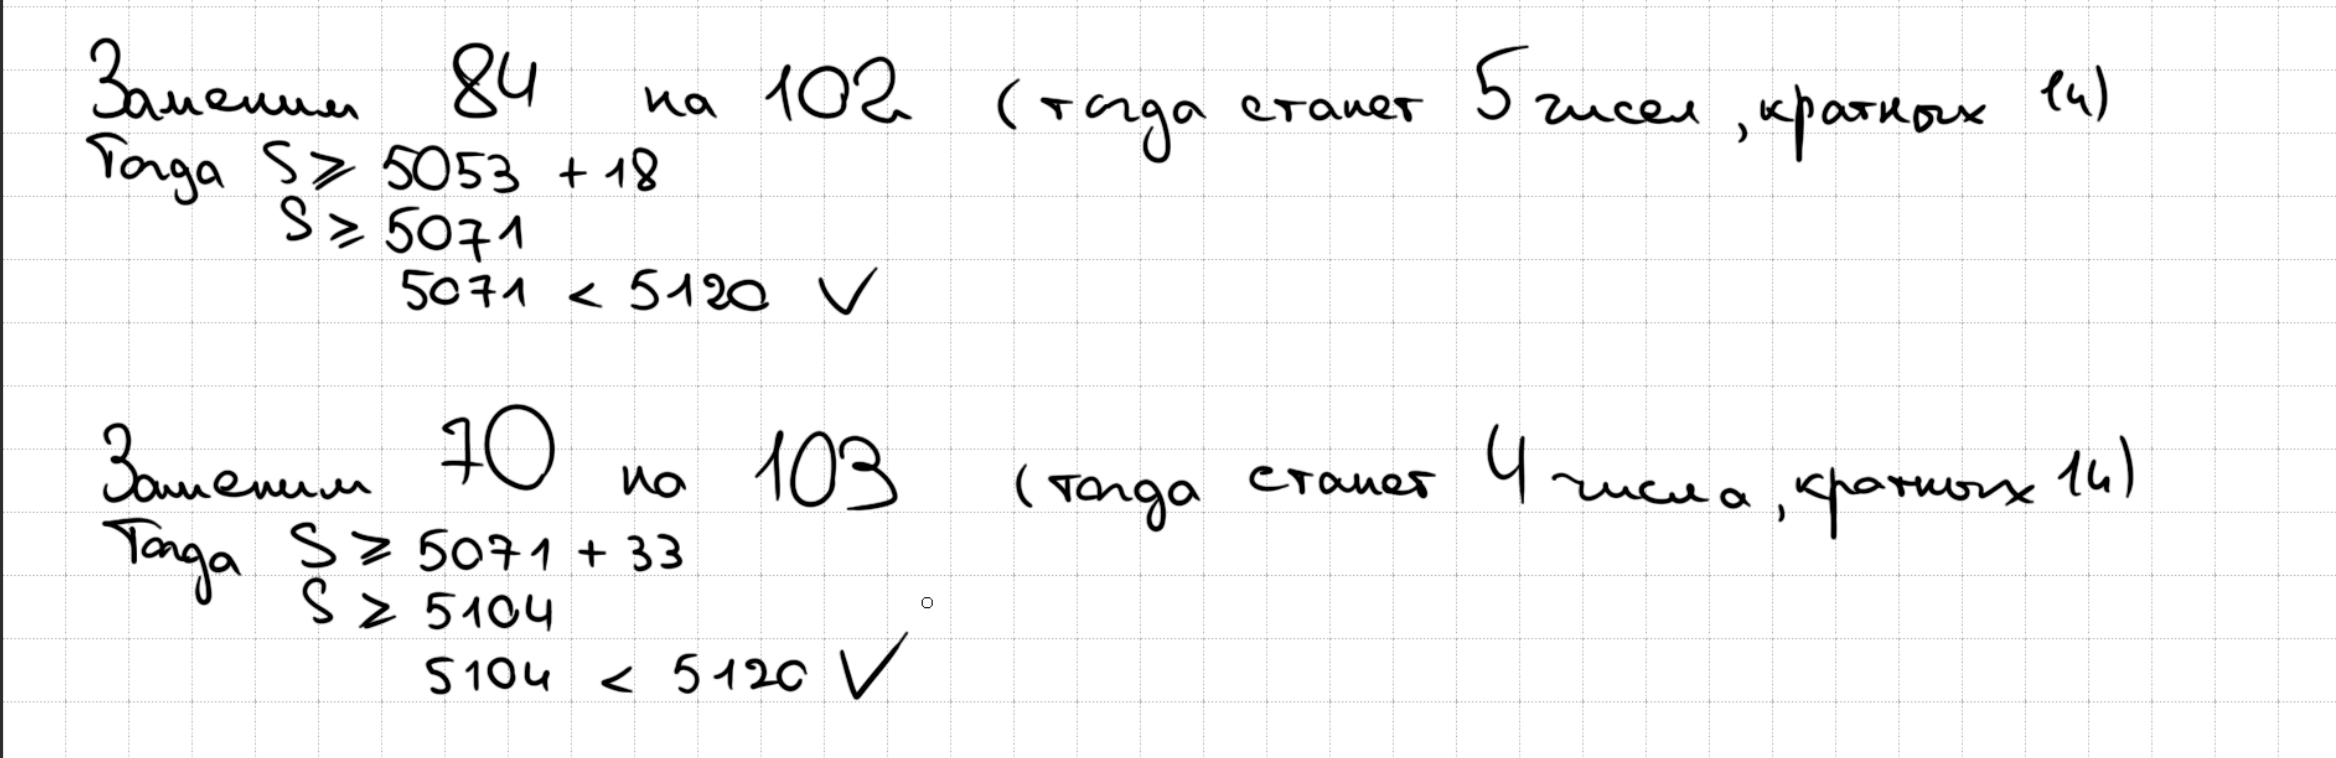 Заменим 84 на 102 (тогда станет 5 чисел, кратных 14)
Тогда S ⩾ 5053 + 18
S ⩾ 5071
5071 < 5120 ✓
Заменим 70 на 103 (тогда станет 4 числа, кратных 14)
Тогда S ⩾ 5071 + 33
S ⩾ 5104
5104 < 5120 ✓